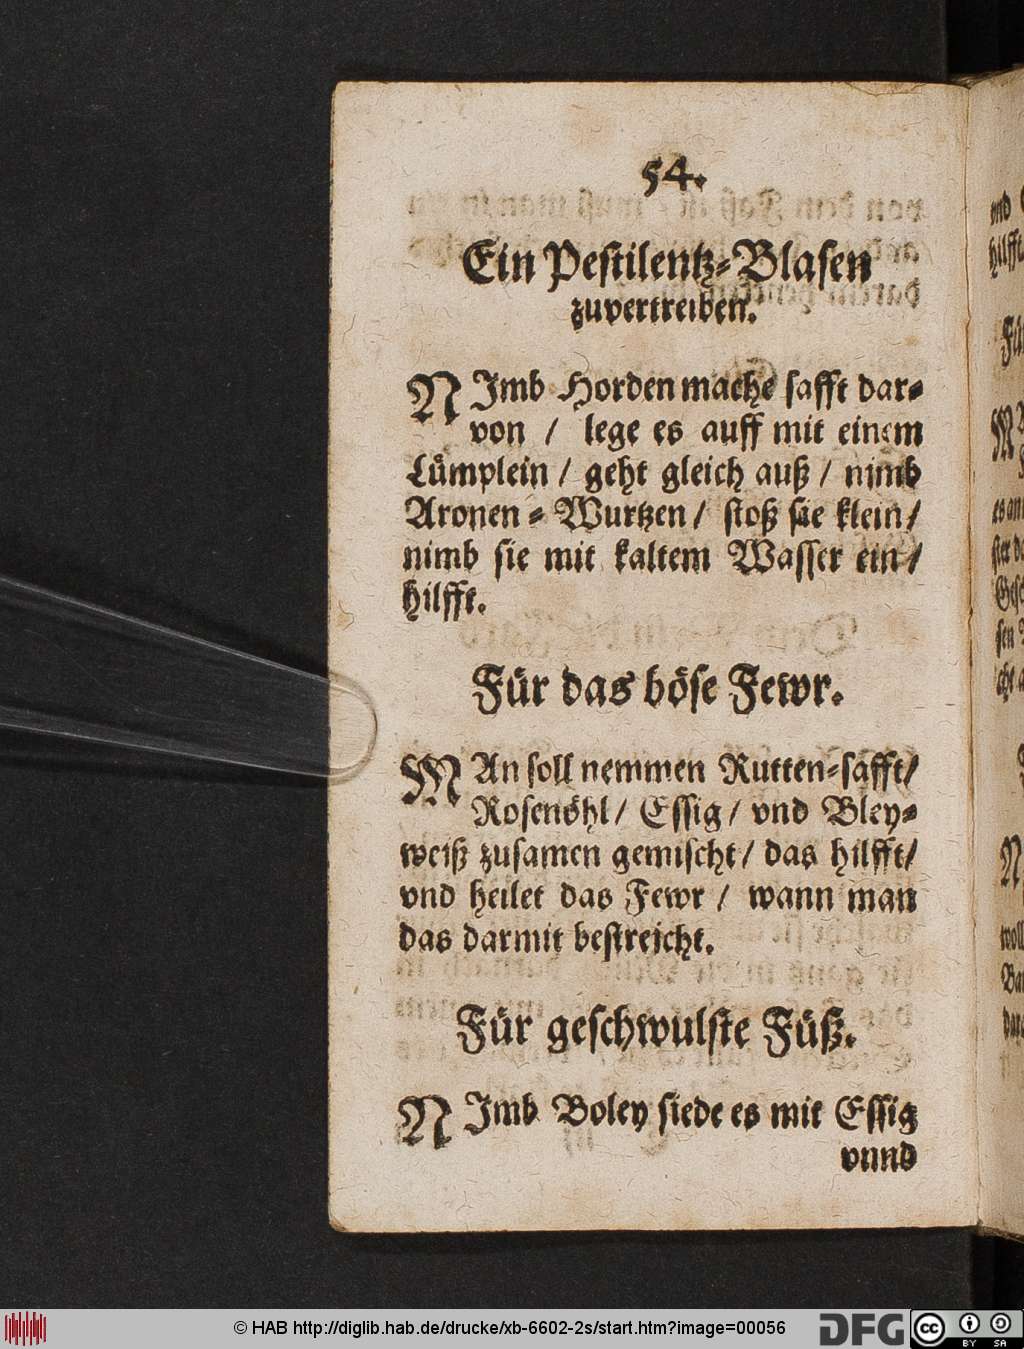 54.
Ein Pestilentz-Blasen
zuvertreiben.
NImb Horden mache safft dar-
von / lege es auff mit einem
Lümplein / geht gleich auß / nimb
Aronen-Wurtzen / stoß sie klein /
nimb sie mit kaltem Wasser ein /
hilfft.
Für das böse Fewr.
MAn soll nemmen Rutten-safft /
Rosenöhl / Essig / vnd Bley-
weiß zusamen gemischt / das hilfft /
vnd heilet das Fewr / wann man
das darmit bestreicht.
Für geschwulste Füß.
NImb Boley siede es mit Essig
vnnd
© HAB http://diglib.hab.de/drucke/xb-6602-2s/start.htm?image=00056
DFG
cc
BY SA